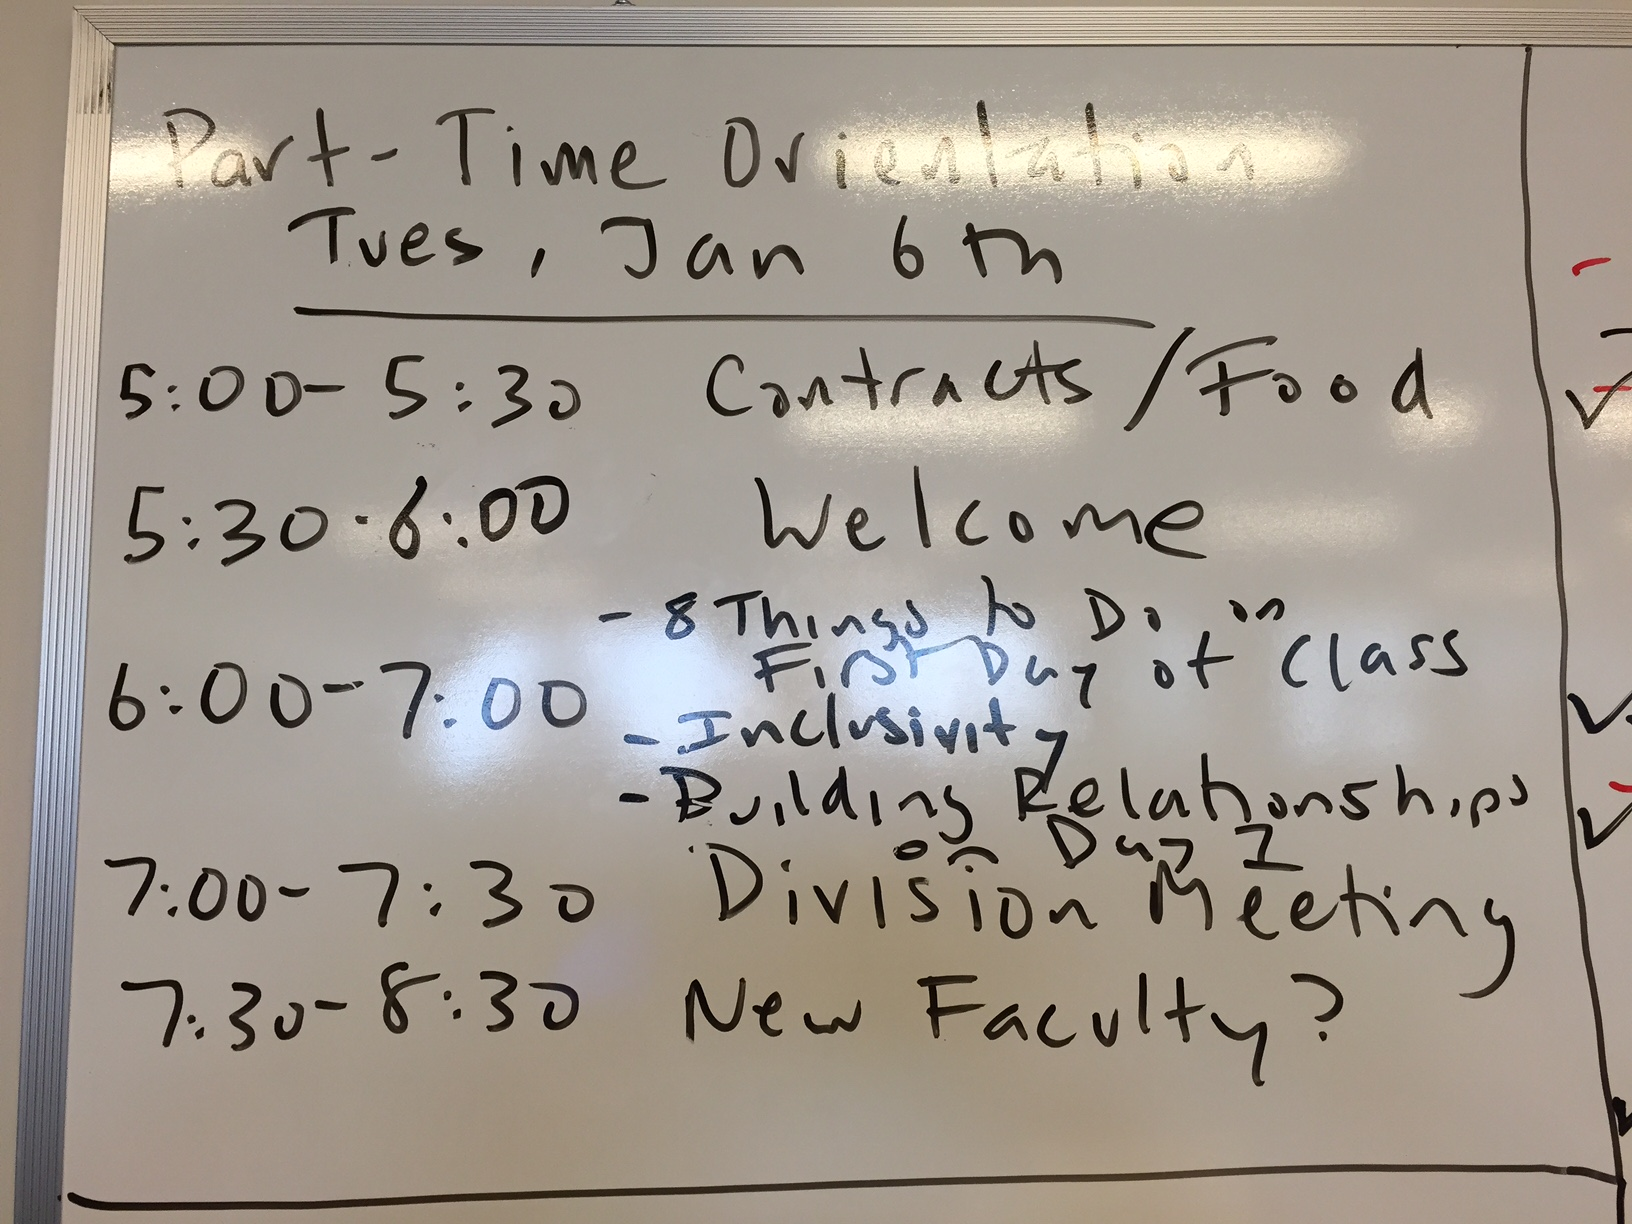 Part-Time Orientation
Tues, Jan 6th
5:00-5:30 Contracts/Food
5:30-6:00 Welcome
6:00-7:00 - 8 Things to Do on
First Day of Class
- Inclusivity
- Building Relationships
on Day 1
7:00-7:30 Division Meeting
7:30-8:30 New Faculty?